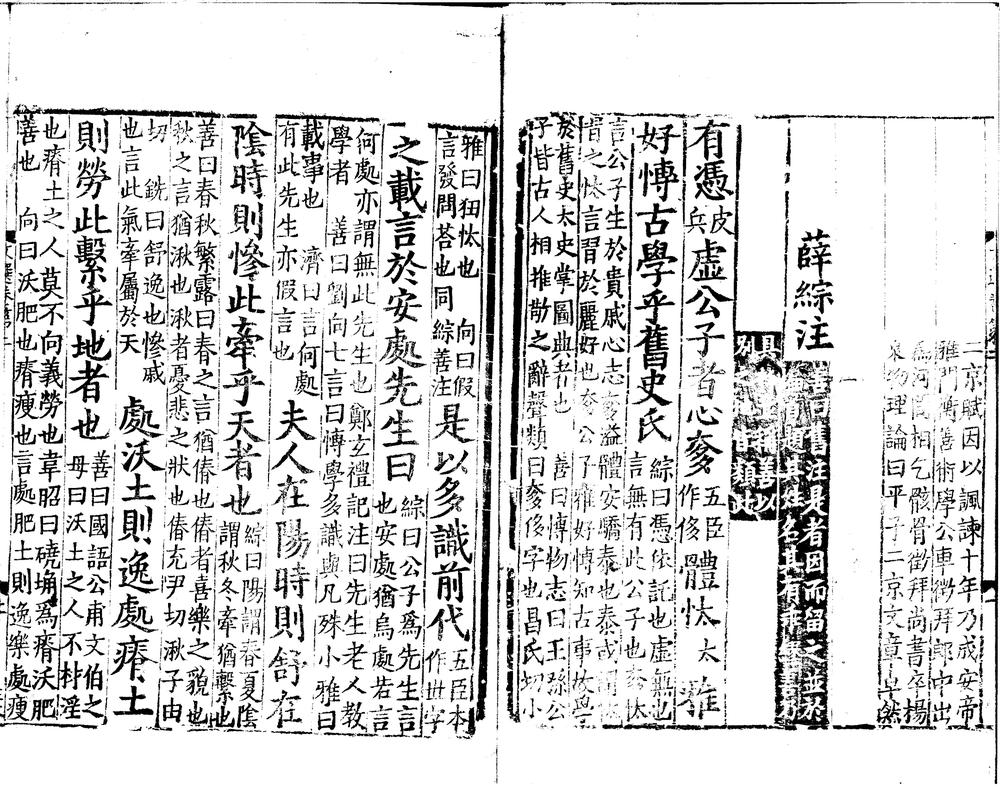 二京賦因以諷諫十年乃成安帝
雅聞衡善術學公車徵拜郎中出
爲河間相乞骸骨徵拜尚書卒楊
泉物理論曰平子二京文章卓然
薛綜注
善曰舊注是者因而留之並於
有憑皮兵虛公子者心奓五臣作侈體忲太雅
好愽古學乎舊史氏綜曰憑依託也虛無也言無有此公子也奓忲
言公子生於貴戚心志奓溢體安驕泰也泰或謂
忕習之忲言習於麗好也公子雅好愽知古事故學
於舊史太史掌圖典者也 善曰博物志曰王孫公
子皆古人相推敬之辭聲類曰奓侈字也昌氏切小
雅曰狃忲也 向曰假言發問荅也同綜善注是以多識前代五臣本作世字
之載言於安處先生曰綜曰公子爲先生言也安處猶烏處若言
何處亦謂無此先生也鄭玄禮記注曰先生老人教
學者 善曰劉向七言曰博學多識與凡殊小雅曰
載事也 濟曰言何處有此先生亦假言也夫人在陽時則舒在
陰時則慘此牽乎天者也綜曰陽謂春夏陰謂秋冬牽猶繫也
善曰春秋繁露曰春之言猶偆也偆者喜樂之貌也
秋之言猶湫也湫者憂悲之狀也偆充尹切湫子由
切 銑曰舒逸也慘戚也言此氣牽屬於天處沃土則逸處瘠土
則勞此繫乎地者也善曰國語公甫文伯之母曰沃土之人不材淫
也瘠土之人莫不向義勞也韋昭曰磽埆爲瘠沃肥
善也 向曰沃肥也瘠瘦也言處肥土則逸樂處瘦